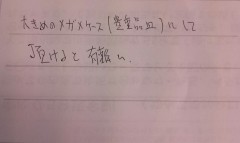 大きめのメガネケース(貴重品皿)にして
頂けると有難い。